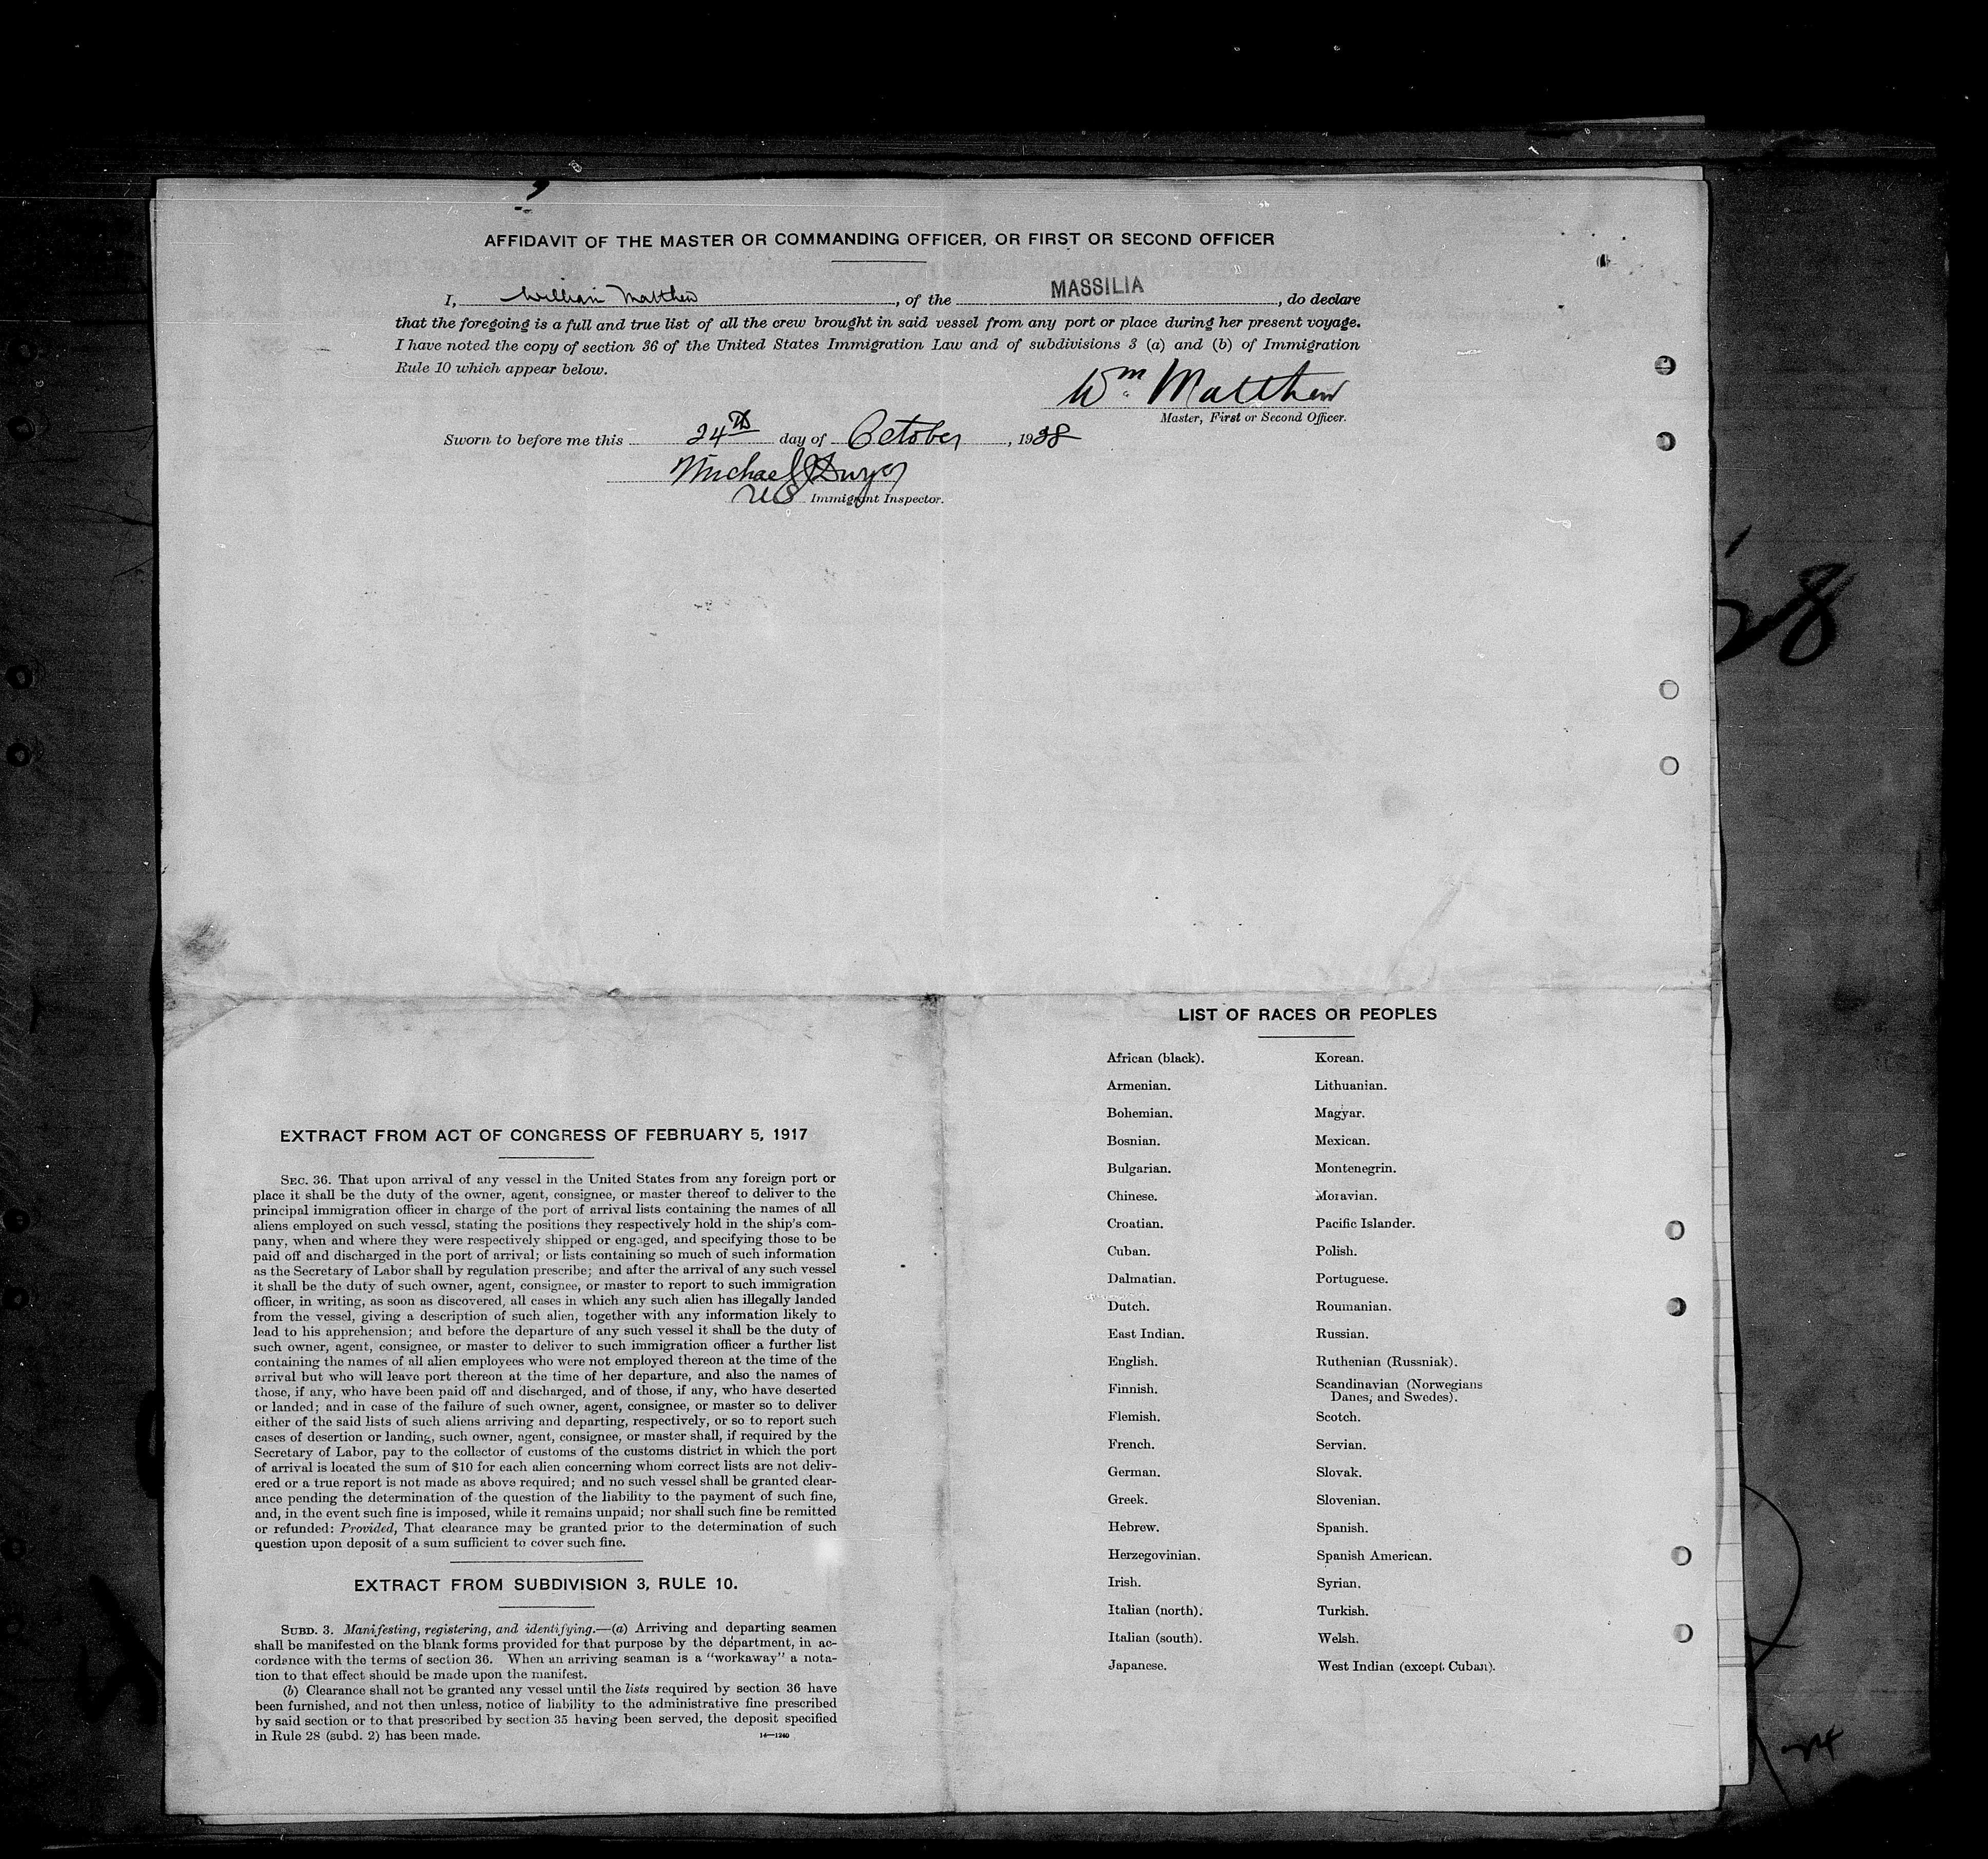 AFFIDAVIT OF THE MASTER OR COMMANDING OFFICER, OR FIRST OR SECOND OFFICER
I, William Matthew, of the MASSILIA, do declare
that the foregoing is a full and true list of all the crew brought in said vessel from any port or place during her present voyage.
I have noted the copy of section 36 of the United States Immigration Law and of subdivisions 3 (a) and (b) of Immigration
Rule 10 which appear below.
Wm Matthew
Master, First or Second Officer.
Sworn to before me this 24th day of October, 1928
Michael J Dwyer
US Immigrant Inspector.
28
EXTRACT FROM ACT OF CONGRESS OF FEBRUARY 5, 1917
SEC. 36. That upon arrival of any vessel in the United States from any foreign port or
place it shall be the duty of the owner, agent, consignee, or master thereof to deliver to the
principal immigration officer in charge of the port of arrival lists containing the names of all
aliens employed on such vessel, stating the positions they respectively hold in the ship's com-
pany, when and where they were respectively shipped or engaged, and specifying those to be
paid off and discharged in the port of arrival; or lists containing so much of such information
as the Secretary of Labor shall by regulation prescribe; and after the arrival of any such vessel
it shall be the duty of such owner, agent, consignee, or master to report to such immigration
officer, in writing, as soon as discovered, all cases in which any such alien has illegally landed
from the vessel, giving a description of such alien, together with any information likely to
lead to his apprehension; and before the departure of any such vessel it shall be the duty of
such owner, agent, consignee, or master to deliver to such immigration officer a further list
containing the names of all alien employees who were not employed thereon at the time of the
arrival but who will leave port thereon at the time of her departure, and also the names of
those, if any, who have been paid off and discharged, and of those, if any, who have deserted
or landed; and in case of the failure of such owner, agent, consignee, or master so to deliver
either of the said lists of such aliens arriving and departing, respectively, or so to report such
cases of desertion or landing, such owner, agent, consignee, or master shall, if required by the
Secretary of Labor, pay to the collector of customs of the customs district in which the port
of arrival is located the sum of $10 for each alien concerning whom correct lists are not deliv-
ered or a true report is not made as above required; and no such vessel shall be granted clear-
ance pending the determination of the question of the liability to the payment of such fine,
and, in the event such fine is imposed, while it remains unpaid; nor shall such fine be remitted
or refunded: Provided, That clearance may be granted prior to the determination of such
question upon deposit of a sum sufficient to cover such fine.
EXTRACT FROM SUBDIVISION 3, RULE 10.
SUBD. 3. Manifesting, registering, and identifying.—(a) Arriving and departing seamen
shall be manifested on the blank forms provided for that purpose by the department, in ac-
cordance with the terms of section 36. When an arriving seaman is a "workaway" a nota-
tion to that effect should be made upon the manifest.
(b) Clearance shall not be granted any vessel until the lists required by section 36 have
been furnished, and not then unless, notice of liability to the administrative fine prescribed
by said section or to that prescribed by section 35 having been served, the deposit specified
in Rule 28 (subd. 2) has been made.
14—1240
LIST OF RACES OR PEOPLES
African (black).
Armenian.
Bohemian.
Bosnian.
Bulgarian.
Chinese.
Croatian.
Cuban.
Dalmatian.
Dutch.
East Indian.
English.
Finnish.
Flemish.
French.
German.
Greek.
Hebrew.
Herzegovinian.
Irish.
Italian (north).
Italian (south).
Japanese.
Korean.
Lithuanian.
Magyar.
Mexican.
Montenegrin.
Moravian.
Pacific Islander.
Polish.
Portuguese.
Roumanian.
Russian.
Ruthenian (Russniak).
Scandinavian (Norwegians
Danes, and Swedes).
Scotch.
Servian.
Slovak.
Slovenian.
Spanish.
Spanish American.
Syrian.
Turkish.
Welsh.
West Indian (except Cuban).